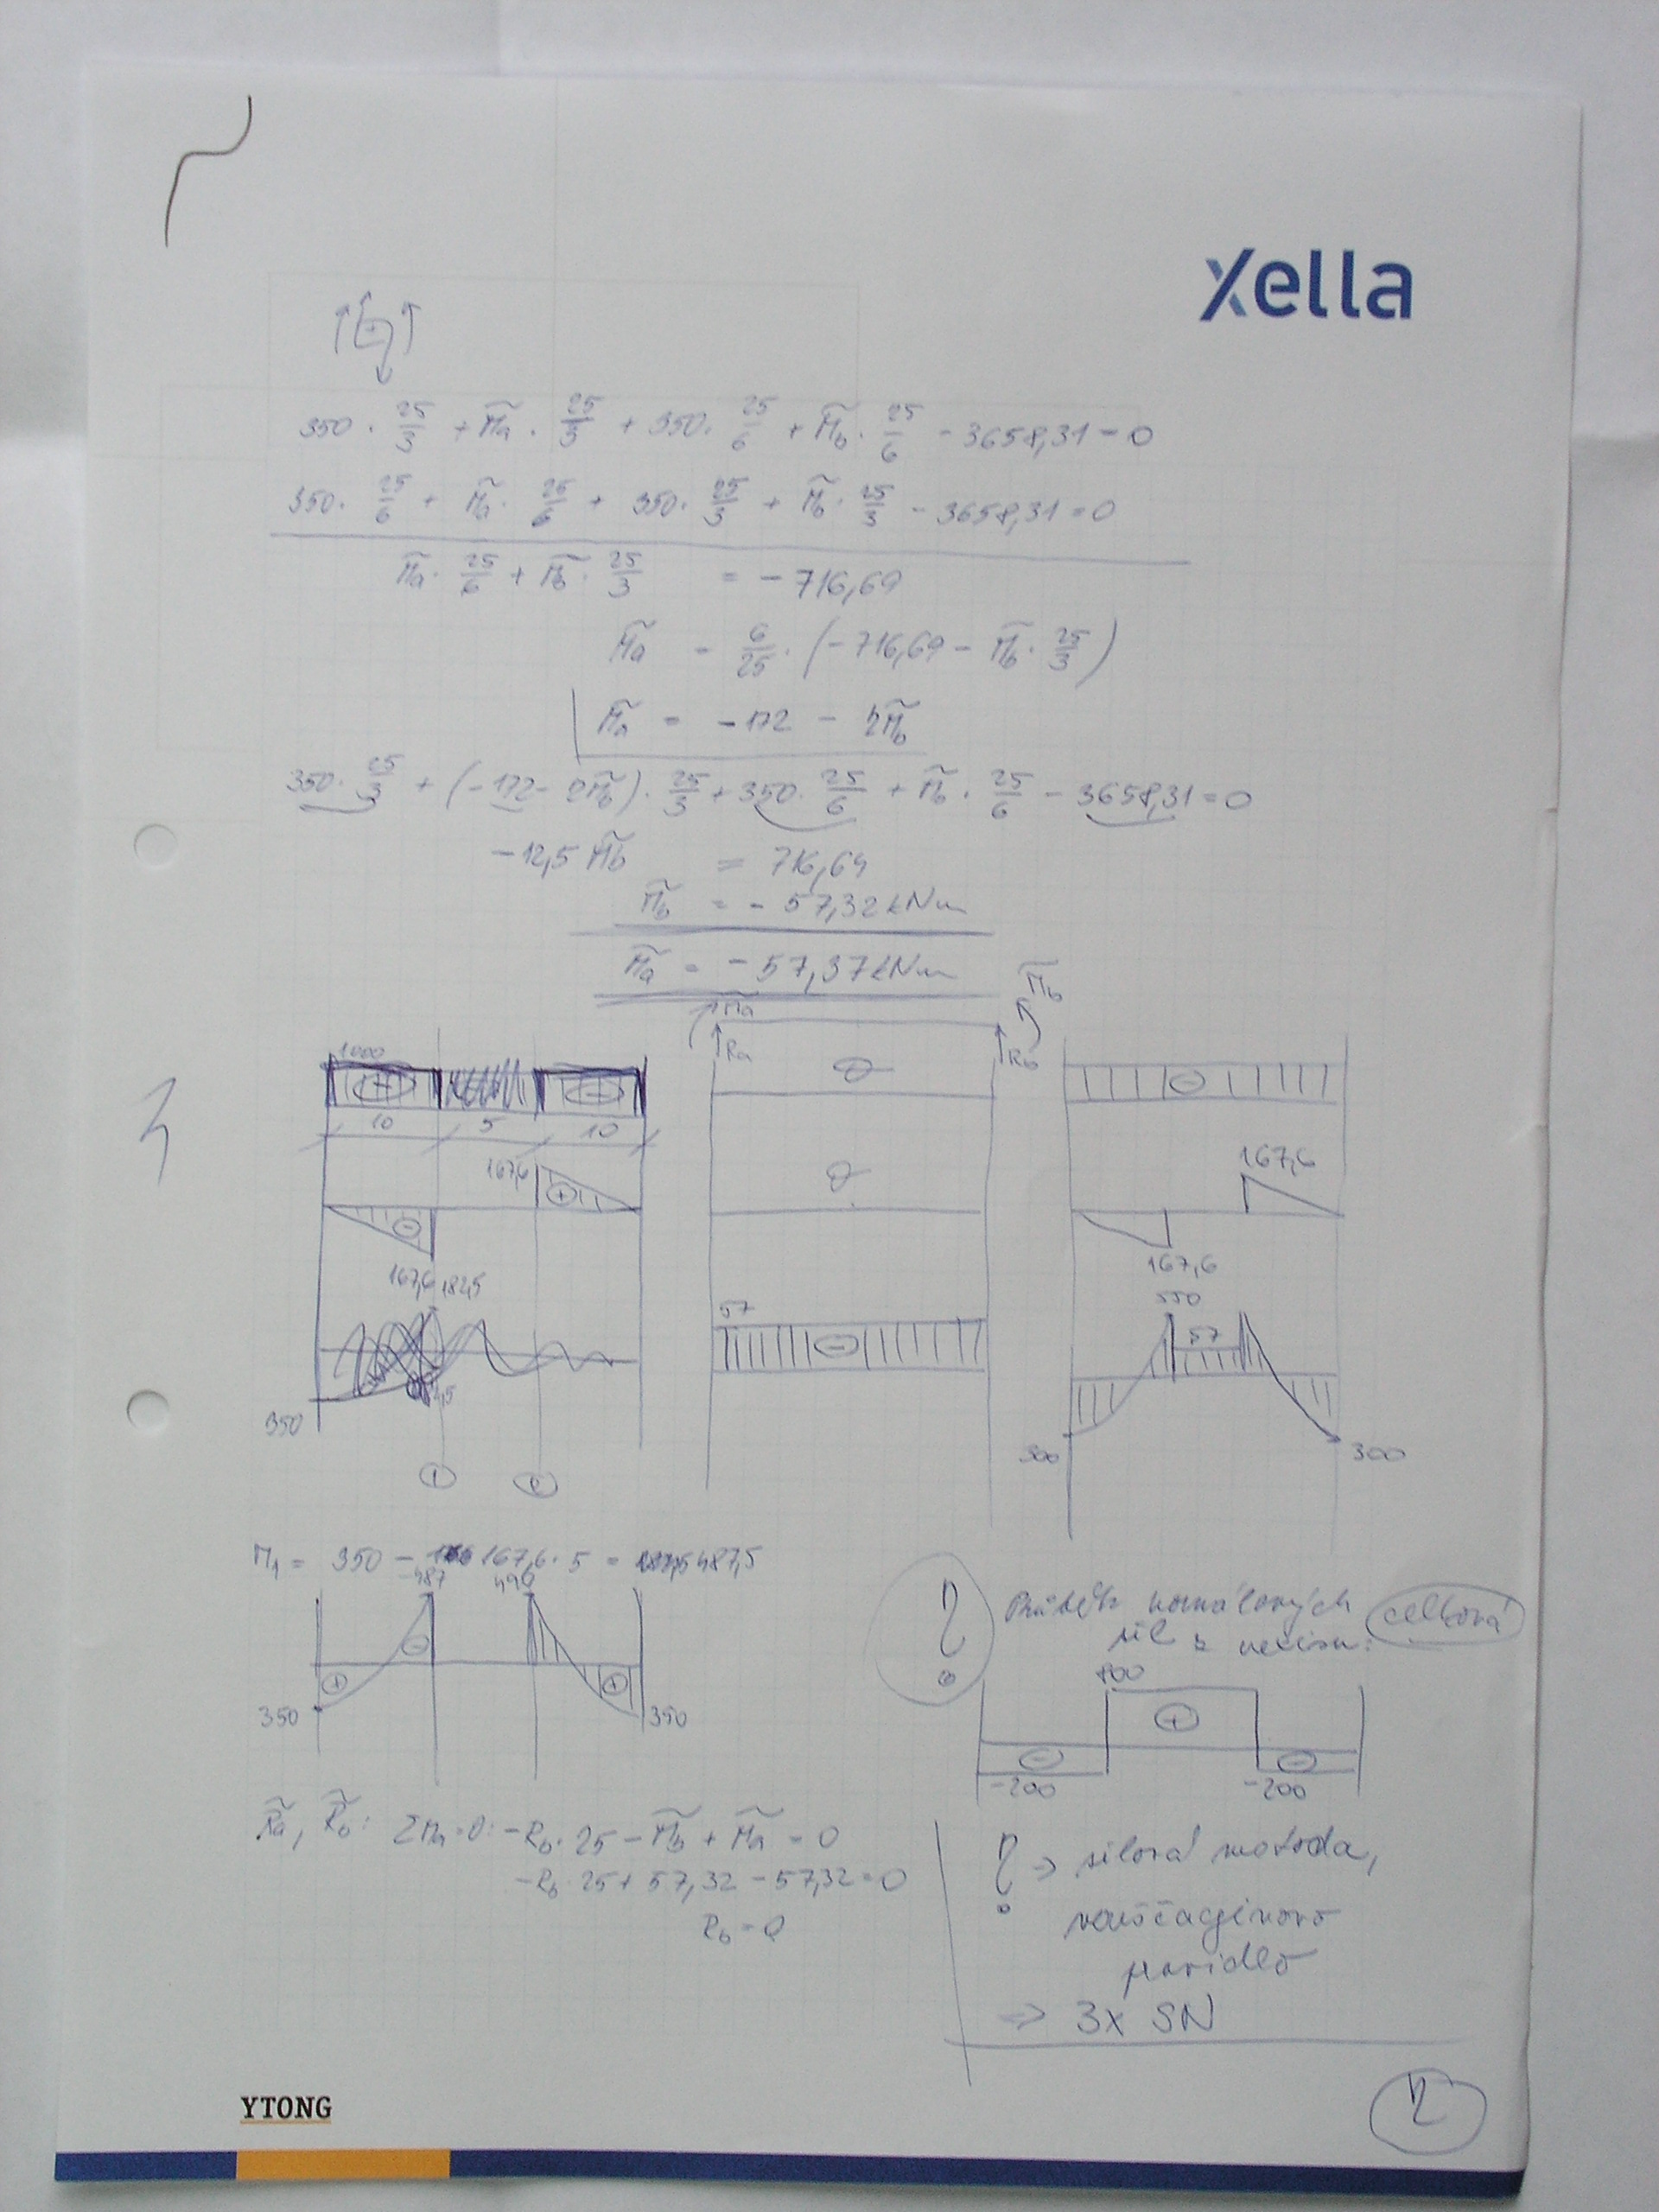 xella
350 · 25/3 + M̃a · 25/3 + 350 · 25/6 + M̃b · 25/6 - 3658,31 = 0
350 · 25/6 + M̃a · 25/6 + 350 · 25/3 + M̃b · 25/3 - 3658,31 = 0
M̃a · 25/6 + M̃b · 25/3 = - 716,69
M̃a = 6/25 · (-716,69 - M̃b · 25/3)
M̃a = -172 - 2M̃b
350 · 25/3 + (-172 - 2M̃b) · 25/3 + 350 · 25/6 + M̃b · 25/6 - 3658,31 = 0
-12,5 M̃b = 716,64
M̃b = - 57,32 kNm
M̃a = - 57,37 kNm
M̃a M̃b
Ra Rb
1000
10 5 10
167,6
167,6
167,6 182,5
167,6
57
550
57
350
300 300
1 2
M1 = 350 - 167,6 · 5 = 487,5
-487 490
350 350
Průběh normálových celková
sil
800
-200 -200
R̃a, R̃b: ΣMa=0: -Rb · 25 - M̃b + M̃a = 0
-Rb · 25 + 57,32 - 57,32 = 0
Rb = 0
? ⇒ silová metoda,
pravidlo
⇒ 3x SN
2
YTONG